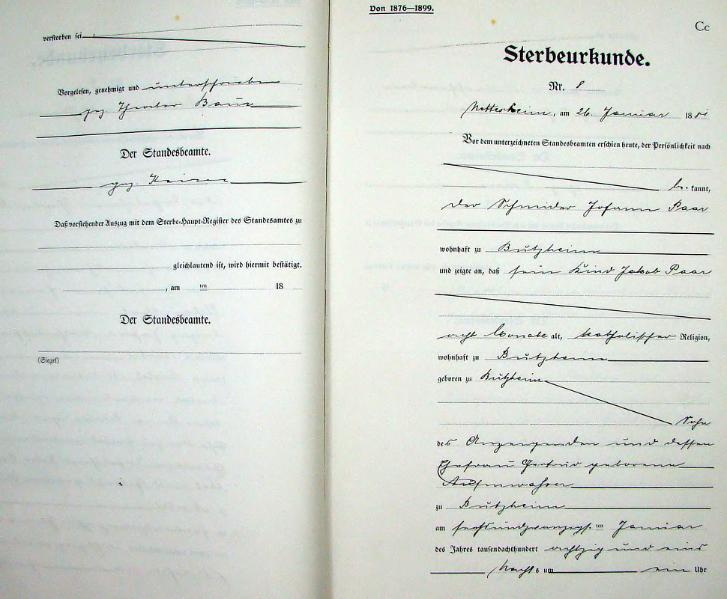 verstorben sei
Vorgelesen, genehmigt und unterschrieben
gez
Der Standesbeamte.
gez
Daß vorstehender Auszug mit dem Sterbe-Haupt-Register des Standesamtes zu
gleichlautend ist, wird hiermit bestätigt.
, am ten 18
Der Standesbeamte.
(Siegel)
Von 1876—1899.
Cc
Sterbeurkunde.
Nr. 8
, am 26. Januar 18 81
Vor dem unterzeichneten Standesbeamten erschien heute, der Persönlichkeit nach
be kannt,
der Schneider Johann Paar
wohnhaft zu Bützheim
und zeigte an, daß sein Kind Jakob Paar
acht Monate alt, katholischer Religion,
wohnhaft zu Bützheim
geboren zu Bützheim
Sohn
des Anzeigenden und dessen
Ehefrau Gertrud geborene
zu Bützheim
am sechsundzwanzigsten Januar
des Jahres tausendachthundert achtzig und eins
Nachts um ein Uhr